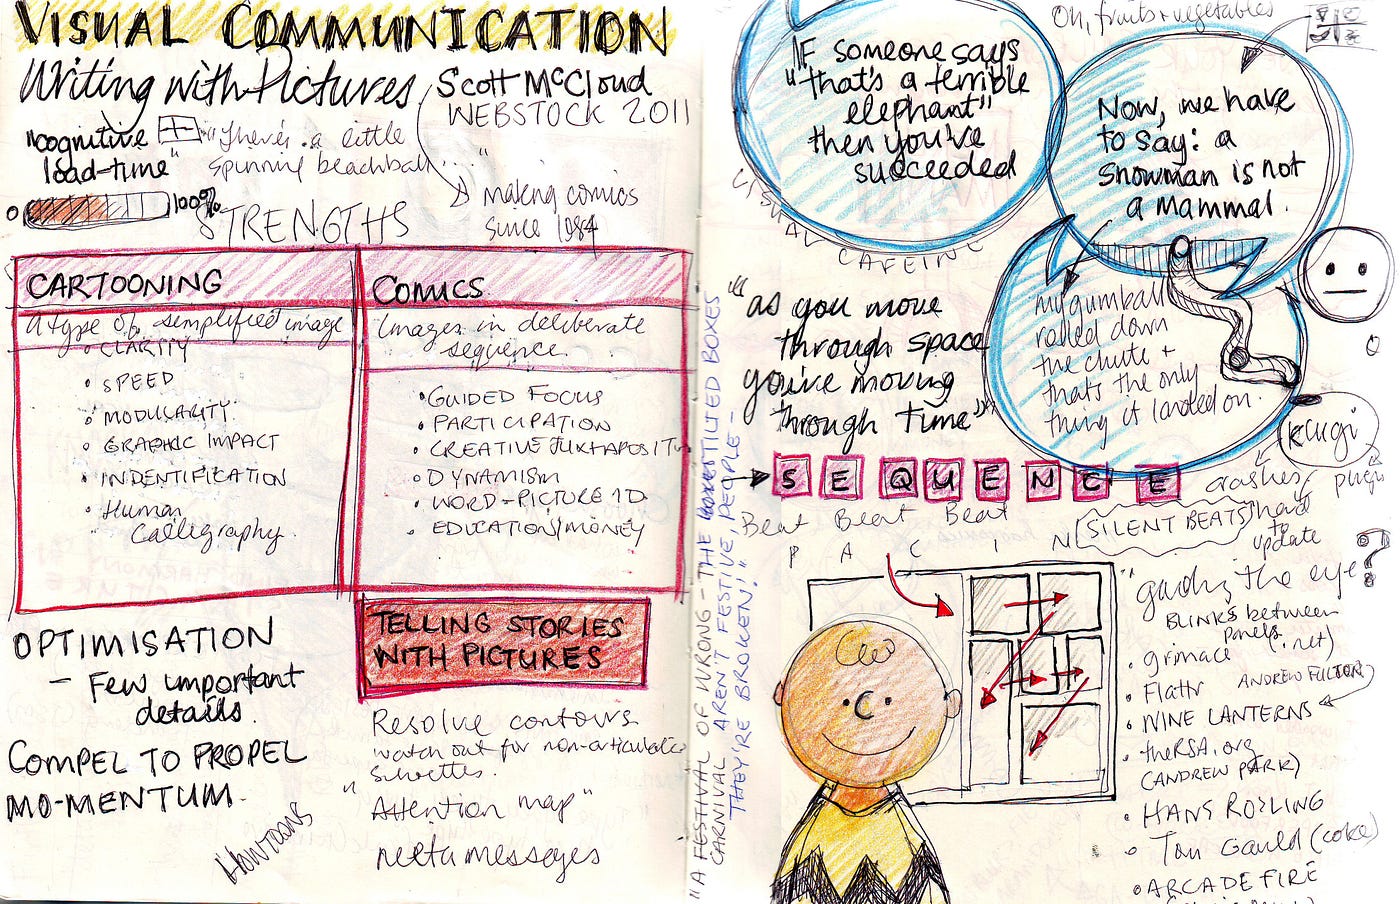 VISUAL COMMUNICATION
Writing with Pictures
Scott McCloud
WEBSTOCK 2011
"cognitive
load-time"
"There's a little
spinning beachball...."
0
100%
making comics
since 1984
STRENGTHS
CARTOONING
A type of simplified image
• CLARITY
• SPEED
• MODULARITY
• GRAPHIC IMPACT
• INDENTIFICATION
• Human
Calligraphy
Comics
Images in deliberate
sequence.
• GUIDED FOCUS
• PARTICIPATION
• CREATIVE JUXTAPOSITN
• DYNAMISM
• WORD-PICTURE ID
• EDUCATION/MONEY
TELLING STORIES
WITH PICTURES
OPTIMISATION
- Few important
details.
COMPEL TO PROPEL
MO-MENTUM.
Howtoons
Resolve contours
watch out for non-articulate
silhouettes.
"Attention map"
meta messages
"A FESTIVAL OF WRONG - THE BOXES TILTED BOXES
CARNIVAL AREN'T FESTIVE, PEOPLE -
THEY'RE BROKEN!"
IF someone says
"that's a terrible
elephant"
then you've
succeeded
VISUAL CAFEINE
Oh, fruits + vegetables
Now, we have
to say: a
snowman is not
a mammal.
my gumball
rolled down
the chute +
that's the only
thing it landed on.
"as you move
through space
you're moving
through time"
SEQUENCE
Beat Beat Beat
PACIN
SILENT BEATS
crashes/
hard
to
update
?
"guiding the eye"
BLINKS between
panels.
• grimace (.net)
• Flattr
ANDREW FULTON
• NINE LANTERNS
• theRSA.org
(ANDREW PARK)
• HANS ROSLING
• Tom Gauld (coke)
• ARCADE FIRE